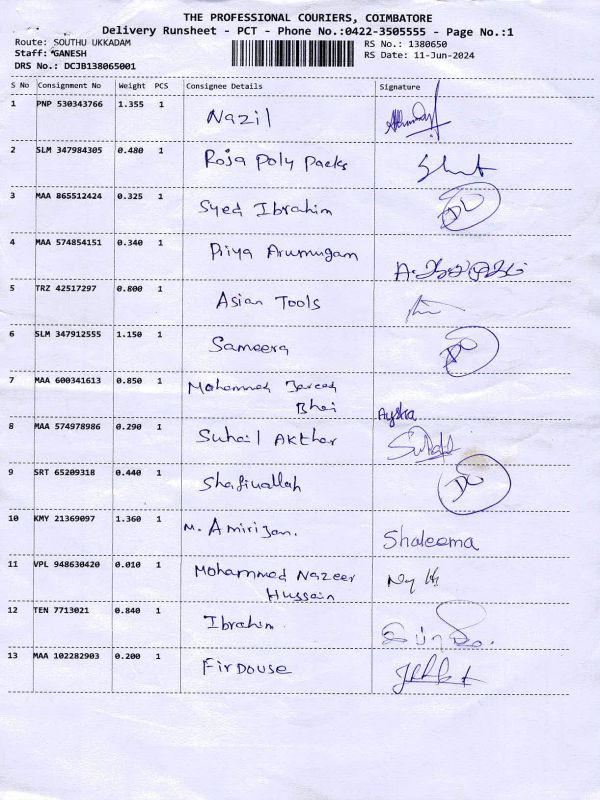 THE PROFESSIONAL COURIERS, COIMBATORE
Delivery Runsheet - PCT - Phone No.:0422-3505555 - Page No.:1
Route: SOUTHU UKKADAM RS No.: 1380650
Staff: *GANESH RS Date: 11-Jun-2024
DRS No.: DCJB138065001
S No Consignment No Weight PCS Consignee Details Signature
1 PNP 530343766 1.355 1 Nazil
2 SLM 347984305 0.480 1 Roja Poly Packs
3 MAA 865512424 0.325 1 Syed Ibrahim
4 MAA 574854151 0.340 1 Priya Arumugam
5 TRZ 42517297 0.800 1 Asian Tools
6 SLM 347912555 1.150 1 Sameera
7 MAA 600341613 0.850 1 Mohammed Jareed
Bhai Aysha
8 MAA 574978986 0.290 1 Suhail Akthar
9 SRT 65209318 0.440 1 Shafiuallah
10 KMY 21369097 1.360 1 M. Amirijan. Shaleema
11 VPL 948630420 0.010 1 Mohammed Nazeer
Hussain
12 TEN 7713021 0.840 1 Ibrahim.
13 MAA 102282903 0.200 1 Firdouse